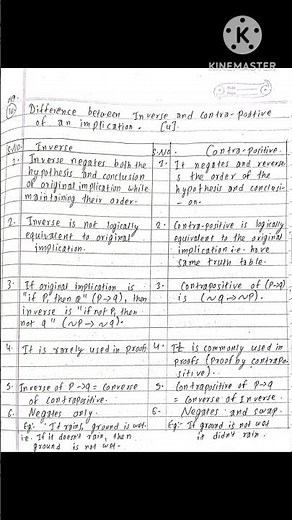 KINEMASTER
Difference between Inverse and Contra-positive
of an implication. [4].
S.No. Inverse
1. Inverse negates both the
hypothesis and conclusion
of original implication while
maintaining their order.
2. Inverse is not logically
equivalent to original
implication.
3. If original implication is
"if P, then Q" (P→Q), then
inverse is "if not P, then
not q" (~P→~q).
4. It is rarely used in proofs
5. Inverse of P→q = Converse
of contrapositive.
6. Negates only.
Eg:- If rains, ground is wet.
i.e. If it doesn't rain, then
ground is not wet.
S.No. Contra-positive
1. It negates and reverse
s the order of the
hypothesis and conclusi-
on.
2. Contra-positive is logically
equivalent to the original
implication i.e. have
same truth table.
3. Contrapositive of (P→q)
is (~q→~P).
4. It is commonly used in
proofs (Proof by contrapo-
sitive).
5. Contrapositive of P→q
= Converse of Inverse.
6. Negates and swap.
Eg:- If ground is not wet
it didn't rain.